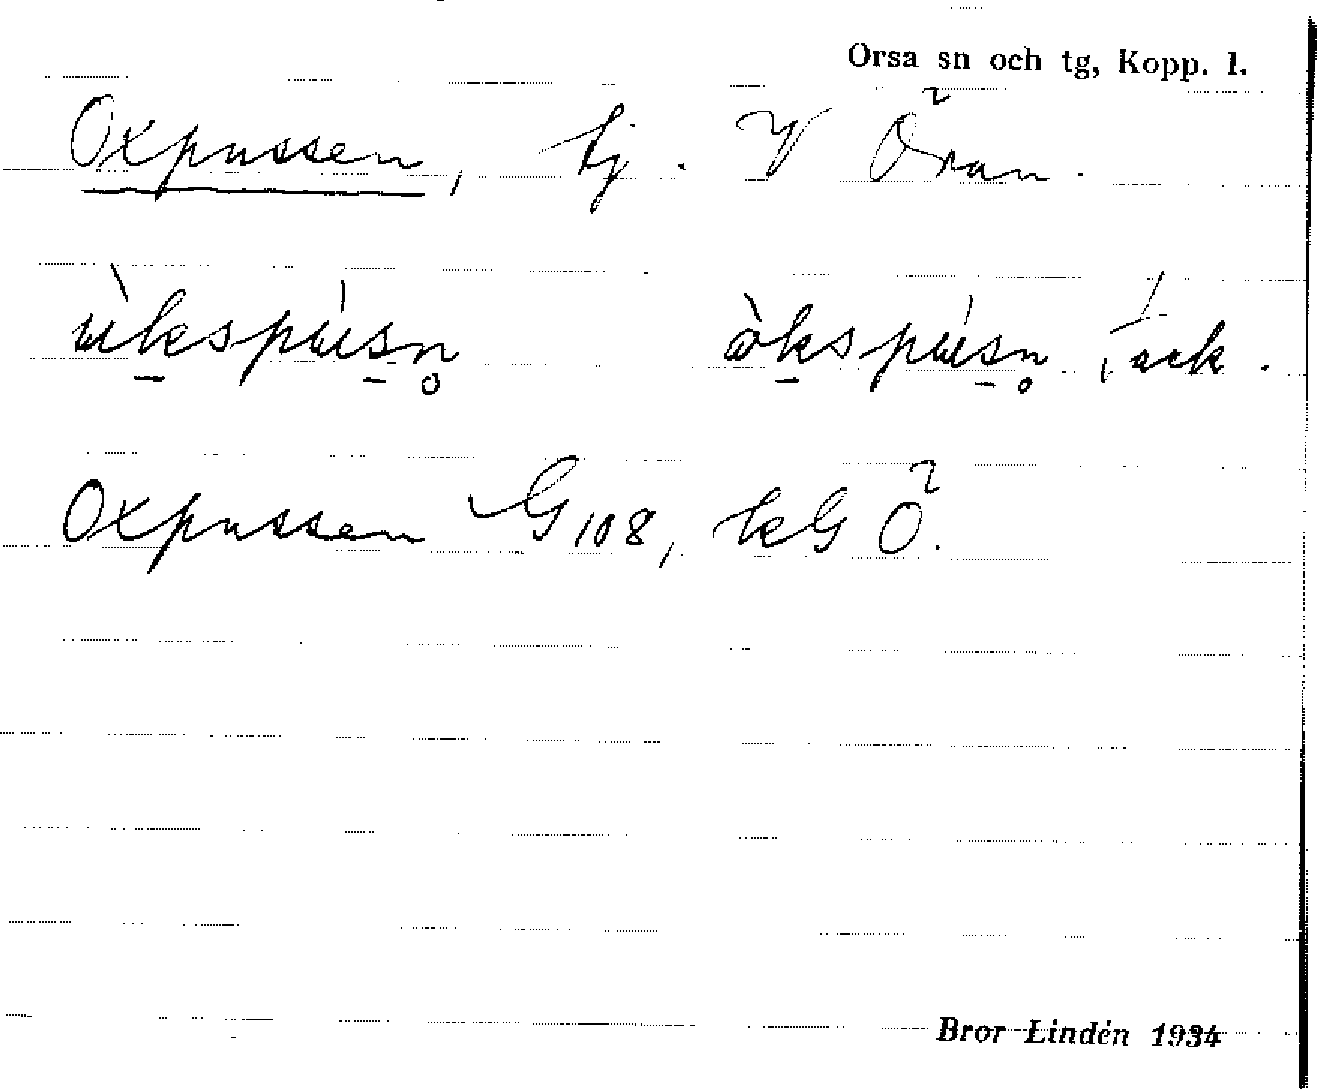 Orsa sn och tg, Kopp. l.
Oxpussen, tj. V Öran.
ùkspúsn̥ òkspúsn̥, äck.
Oxpussen G 108, kG Ö.
Bror Lindén 1934